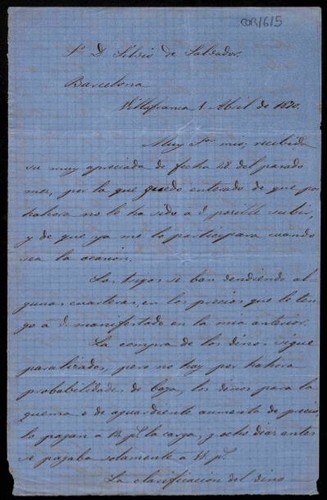 COR/615
Sr. D. Silvio de Salvador.
Barcelona
Villafranca 1 Abril de 1870.
Muy Sr mio; recibida
su muy apreciada de fecha 28 del pasado
mes, por la que quedo enterado de que por
hahora no le ha sido a V. posible subir,
y de que ya me lo participara cuando
sea la ocasion.
Los trigos se ban bendiendo al
gunas cuarteras, en los precios que le ten
go a V. manifestado en la mia anterior.
La compra de los binos sigue
paralizados, pero no hay por hahora
probabilidades de baja, los binos para la
quema o de aguardiente aumento de precio
lo pagan a la carga, y ocho dias antes
se pagaba solamente a
La clasificacion del bino